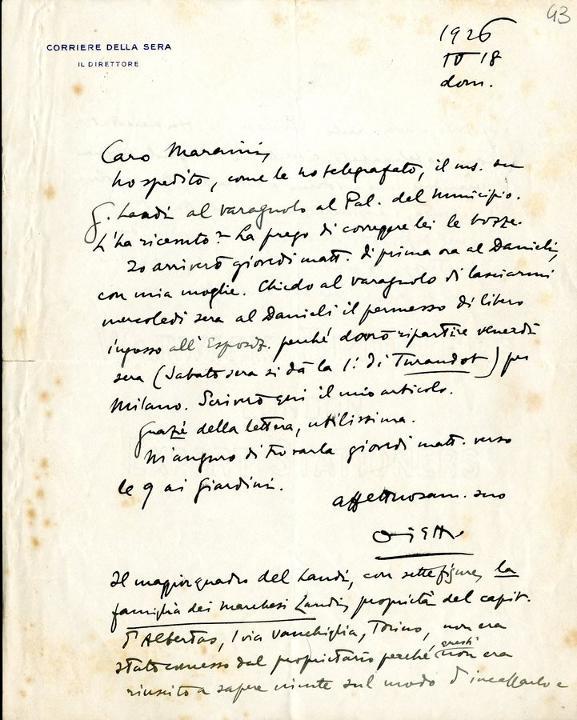 43
CORRIERE DELLA SERA
IL DIRETTORE
1926
10 18
dom.
Caro Maraini,
ho spedito, come le ho telegrafato, il ms. su
G. Landi al Varagnolo al Pal. del Municipio.
L'ha ricevuto? La prego di correggere lei le bozze.
Io arriverò giovedì matt. di prima ora al Danieli,
con mia moglie. Chiedo al Varagnolo di lasciarmi
mercoledì sera al Danieli il permesso di libero
ingresso all'Esposiz. perché dovrò ripartire venerdì
sera (Sabato sera si dà la 1ª di Turandot) per
Milano. Scriverò qui il mio articolo.
Grazie della lettera, utilissima.
M'auguro di trovarla giovedì matt. verso
le 9 ai Giardini.
affettuosam. suo
Ojetti
Il maggior quadro del Landi, con sette figure, la
famiglia dei marchesi Landi, proprietà del capit.
D'Albertas, 1 via Vanchiglia, Torino, non era
stato concesso dal proprietario perché questi non era
riuscito a sapere niente sul modo d'incassarlo e